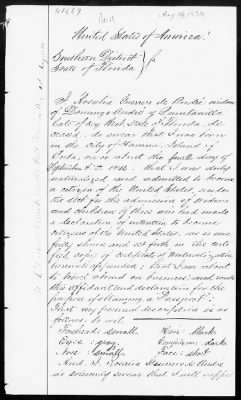 United States of America!
Southern District
State of Florida
I, Rosalia Guerero de André widow
of Domingo André of
City of Key West State of Florida, de
ceased, do swear that I was born
in the city of Havana, Island of
Cuba, on or about the fourth day of
September 4th that I was duly
naturalized and admitted to become
a citizen of the United States, under
the Act for the admission of widows
and children of those who had made
a declaration of intention to become
citizens of the United States, as is more
fully shown and set forth in the certi
fied copy of certificate of naturalization
hereunto affixed; that I am about
to travel abroad on business and make
this affidavit and declaration for the
purpose of obtaining a Passport.
That my personal description is as
follows to wit:
Forehead: small Hair: black
Eyes: gray Complexion: dark
nose: small Face: short
And I, Rosalia Guerero de André
do solemnly swear that I will support